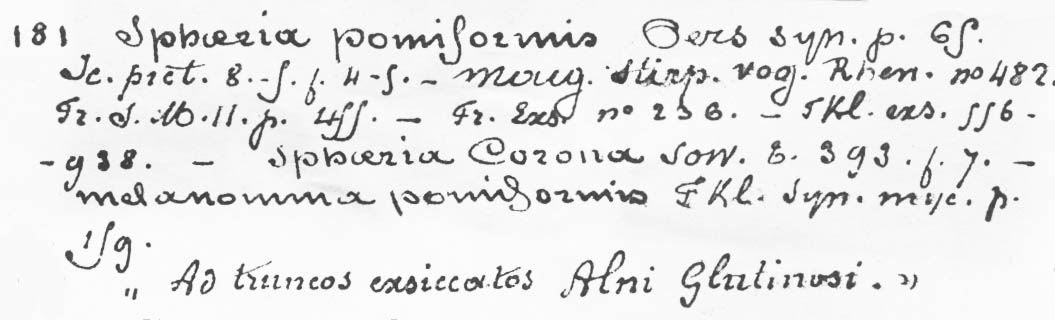 181 Sphæria pomiformis Pers syn. p. 65.
Ic. pict. 8.-5. f. 4-5. - Moug. Stirp. vog. Rhen. nº 482.
Fr. S. M. II. p. 455. - Fr. Exs. nº 236. - Fkl. exs. 556-
-938. - Sphæria Corona Sow. t. 393. f. 7. -
melanomma pomiformis Fkl. Syn. myc. p.
159.
„ Ad truncos exsiccatos Alni Glutinosi. "